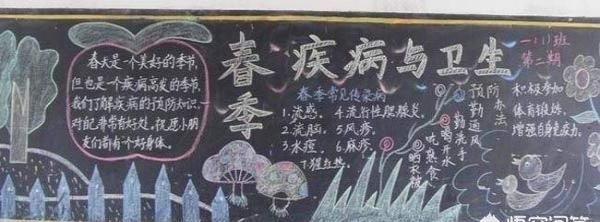 春天是一个美好的季节,
但也是一个疾病高发的季节,
我们了解疾病的预防知识,
对配非常有好处。祝愿小朋
友们都有个好身体。
春季
疾病与卫生
一(1)班
第二期
春季常见传染病
1.流感。 4.流行性腮腺炎。
2.流脑。 5.风疹。
3.水痘。 6.麻疹。
7.猩红热。
预防办法
勤通风
勤洗手
喝开水
吃熟食
晒衣被
积极参加
体育锻炼,
增强自身免疫力。